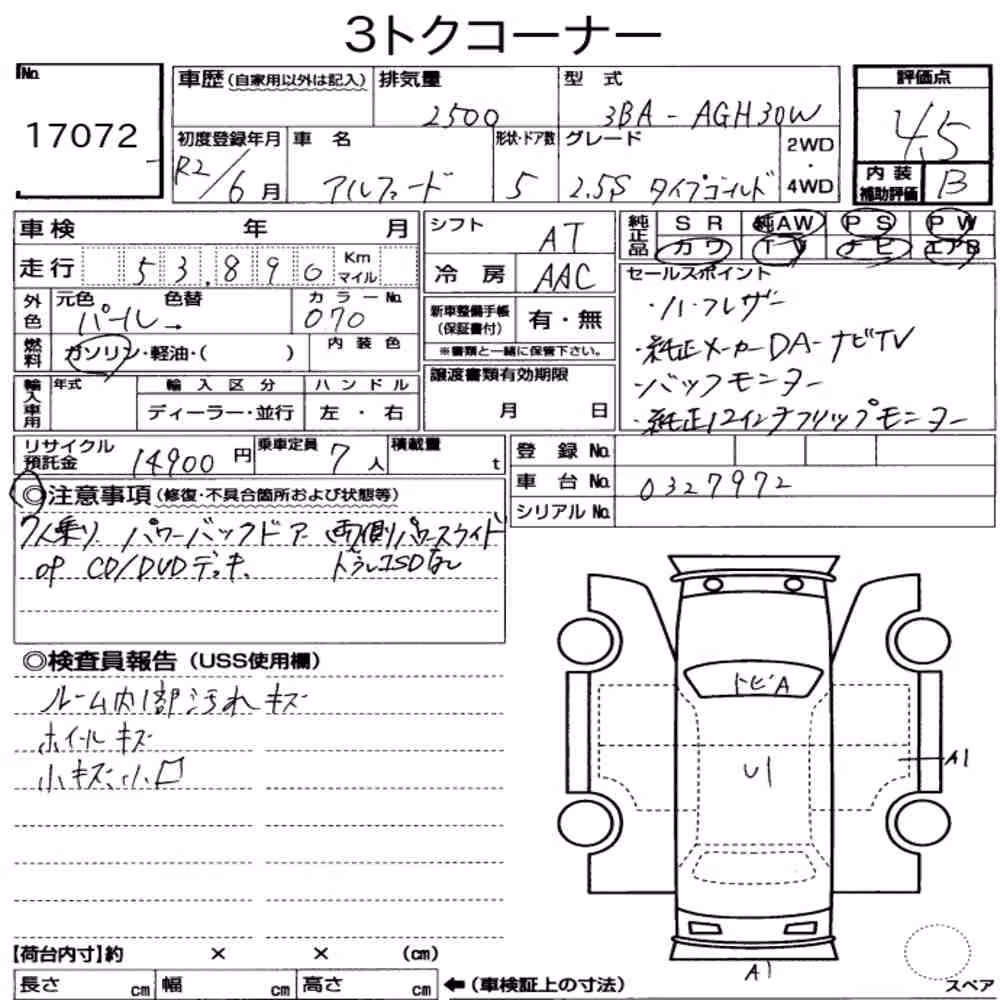 3トクコーナー
No.
17072
車歴(自家用以外は記入)
排気量
2500
型 式
3BA-AGH30W
評価点
4.5
初度登録年月
R2/6月
車 名
アルファード
形状・ドア数
5
グレード
2.5S タイプゴールド
2WD
・
4WD
内 装
補助評価
B
車検 年 月
走行 53,890 Km
マイル
シフト
AT
冷 房
AAC
純正品
SR 純AW PS PW
カワ TV ナビ エアB
セールスポイント
・ハーフレザー
・純正メーカーDA-ナビTV
・バックモニター
・純正12インチフリップモニター
外色
元色
パール→
色替
カラーNo.
070
新車整備手帳
(保証書付)
有・無
※書類と一緒に保管下さい。
燃料
ガソリン・軽油・( )
内 装 色
輸入車用
年式
輸 入 区 分
ディーラー・並行
ハ ン ド ル
左 ・ 右
譲渡書類有効期限
月 日
リサイクル
預託金
14900円
乗車定員
7人
積載量
t
登 録 No.
車 台 No.
0327972
シリアルNo.
◎注意事項(修復・不具合箇所および状態等)
7人乗り パワーバックドア 両側パワースライド
OP CD/DVDデッキ. トラレコSDなし
◎検査員報告(USS使用欄)
ルーム内1部汚れキズ
ホイールキズ
小キズ、小凹
トビA
U1
A1
A1
【荷台内寸】約 × × (cm)
長さ cm 幅 cm 高さ cm
←(車検証上の寸法)
スペア